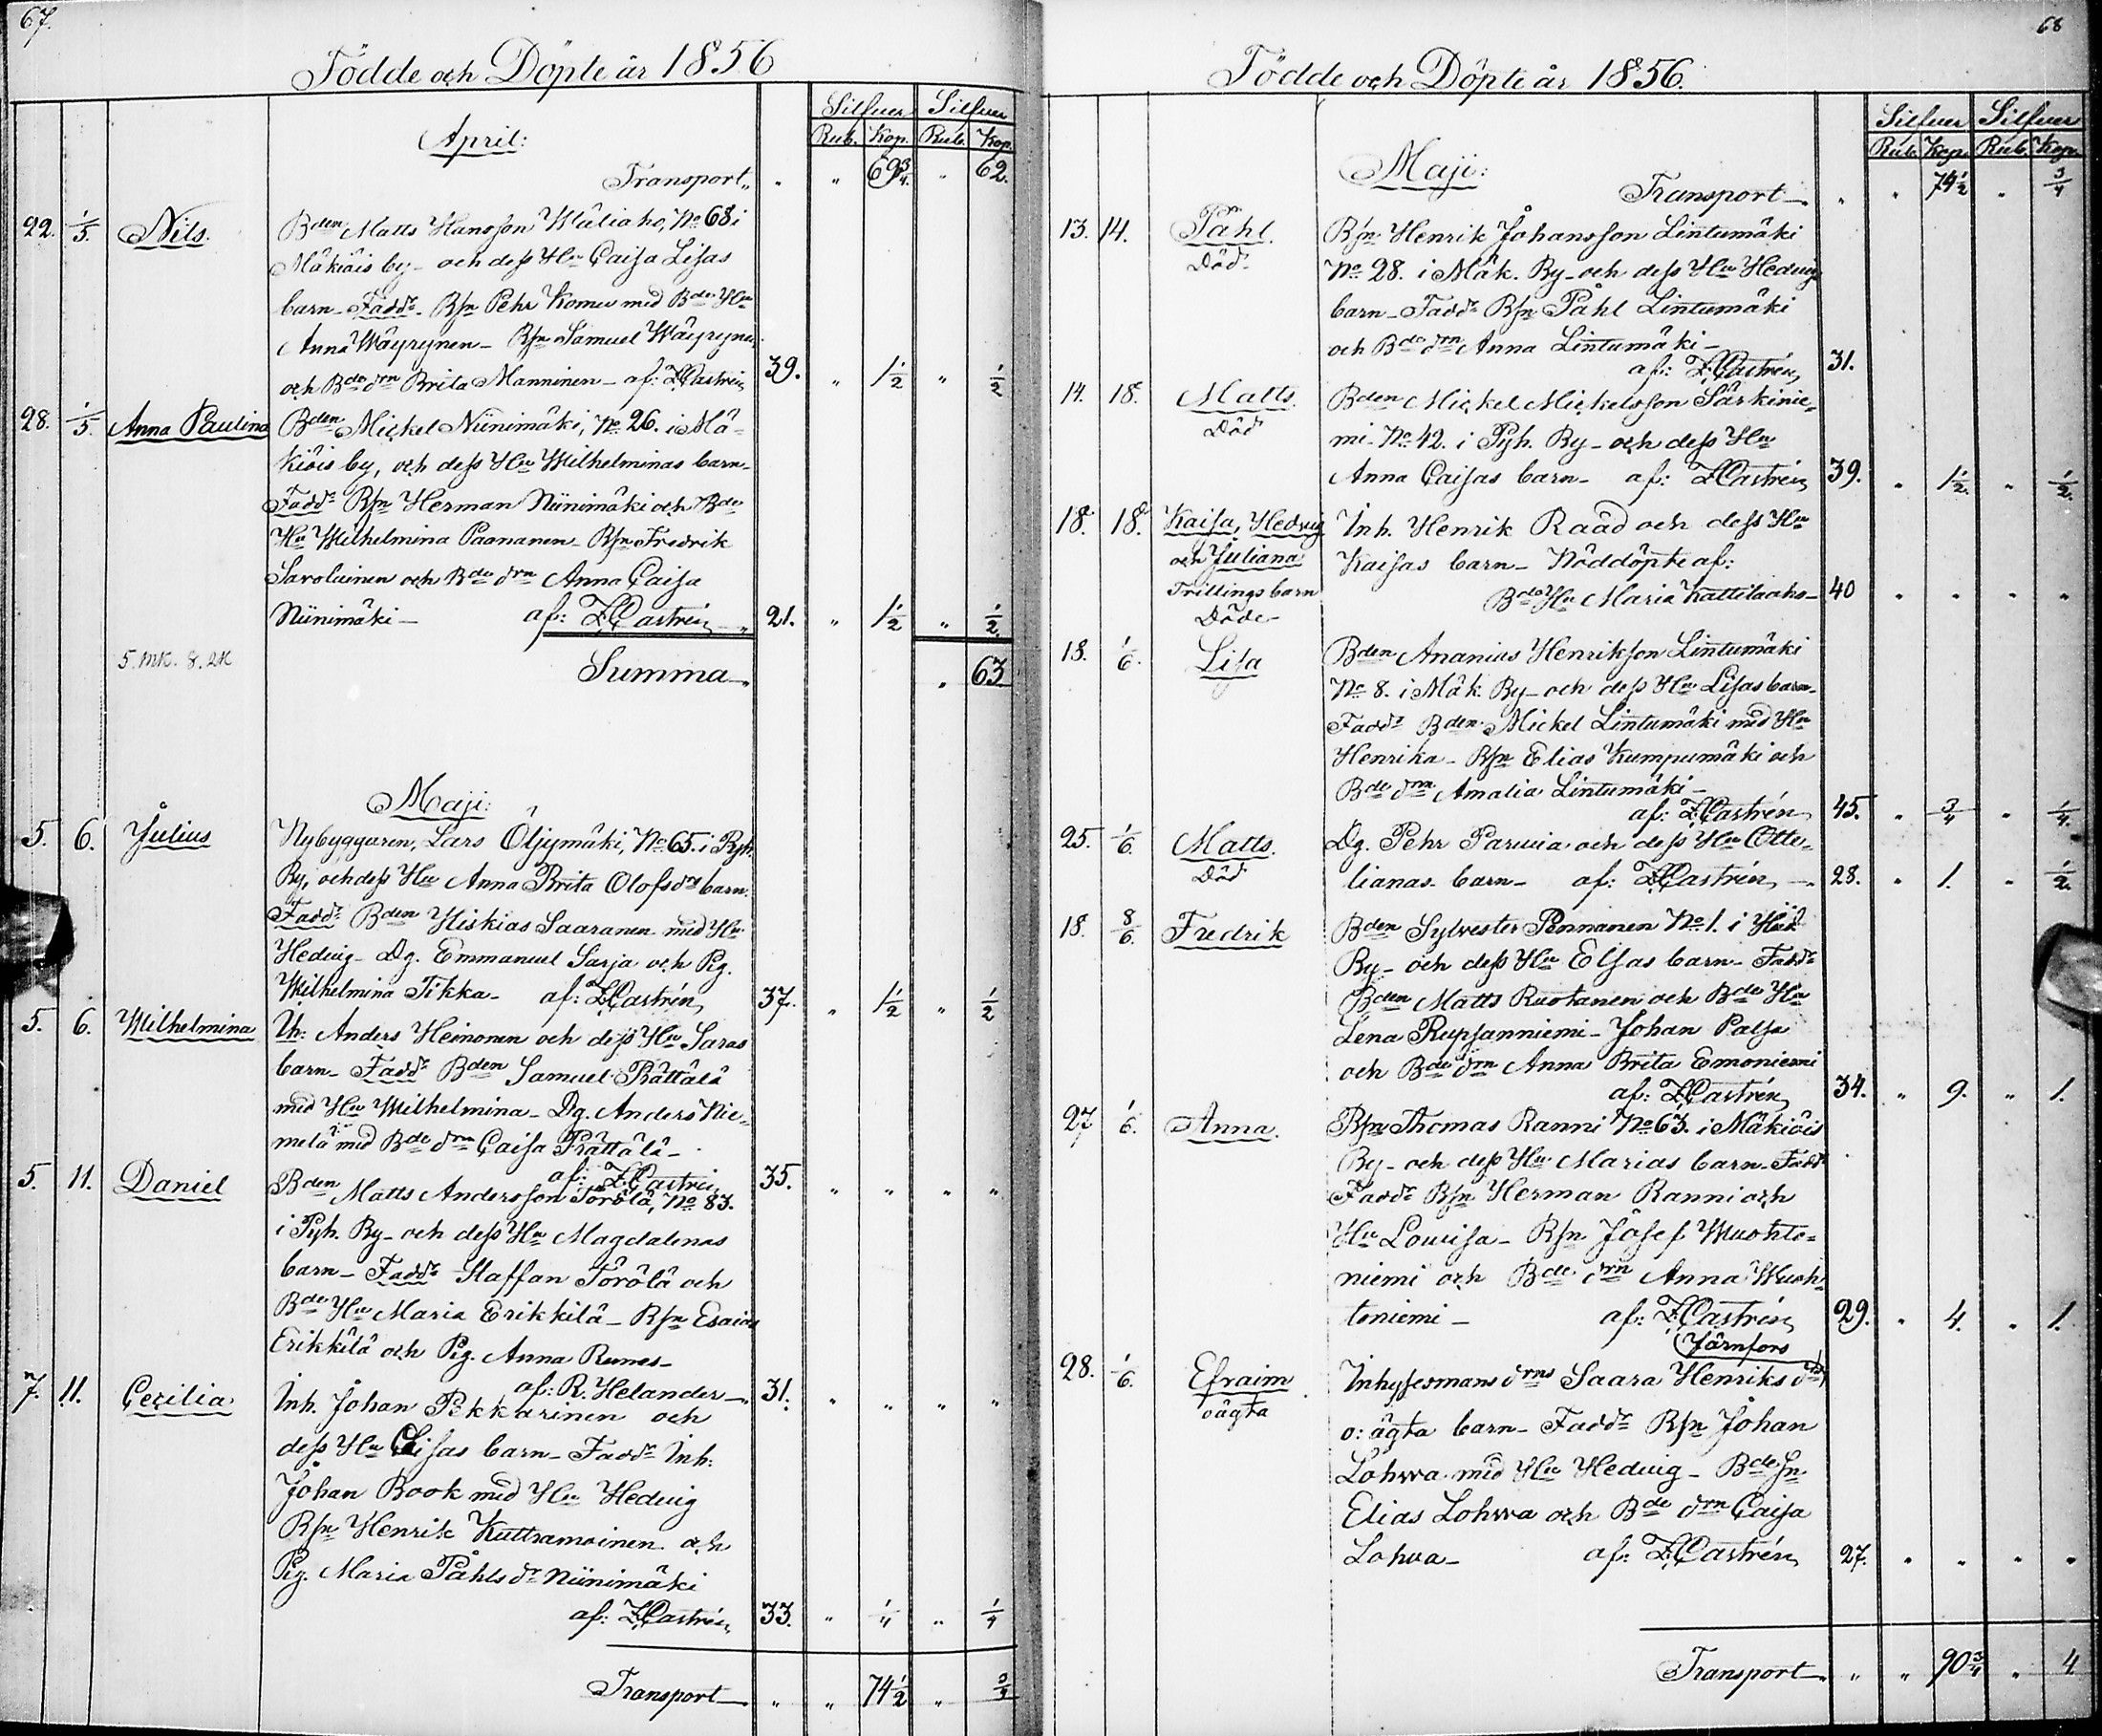 67.
Födde och Döpte år 1856
Silfver Silfver
Rub. Kop. Rub. Kop.
April:
Transport „ „ 69 3/4. „ 62.
22. 1/5. Nils. Bden Matts Hansson Mäliaho, No 68 i
Mäkiäis by - och dess Hu Caisa Lisas
barn - Faddr. Bsn Pehr Komu med Bde Hu
Anna Wäyrynen - Bsn Samuel Wäyrynen
och Bde drn Brita Manninen - af: Z. Castrén 39. „ 1 1/2 „ 1/2
28. 1/5. Anna Paulina Bden Mickel Niinimäki, No 26. i Mä-
kiöis by, och dess Hu Wilhelminas barn -
Faddr Bsn Herman Niinimäki och Bde
Hu Wilhelmina Paananen - Bsn Fredrik
Savolainen och Bde drn Anna Caisa
Niinimäki - af: Z. Castrén 21. „ 1 1/2 „ 1/2.
5. mk. 8. 2k Summa „ 63
Maji:
5. 6. Julius Nybyggaren, Lars Öljymäki, No 65. i Pyh.
By, och dess Hu Anna Brita Olofsdrs barn.
Faddr Bden Hiskias Saaranen med Hu
Hedvig - Dg. Emmanuel Sarja och Pig.
Wilhelmina Tikka - af: Z. Castrén 37. „ 1 1/2 „ 1/2
5. 6. Wilhelmina Th: Anders Heinonen och dess Hu Saras
barn - Faddr Bden Samuel Prättälä
med Hu Wilhelmina - Dg. Anders Nie-
melä med Bde drn Caisa Prättälä -
af: Z. Castrén 35. „ „ „ „
5. 11. Daniel Bden Matts Andersson Törölä, No 83.
i Pyh. By - och dess Hu Magdalenas
barn - Faddr Staffan Törölä och
Bde Hu Maria Erikkilä - Bsn Esaias
Erikkilä och Pig. Anna Runes -
af: R. Helander - 31. „ „ „ „
7. 11. Cecilia Inh. Johan Pekkarinen och
dess Hu Lisas barn - Faddr Inh:
Johan Book med Hu Hedvig
Bsn Henrik Kuttramoinen och
Pig. Maria Påhls dr Niinimäki
af: Z. Castrén 33. „ 1/4 „ 1/4
Transport „ „ 74 1/2 „ 3/4
68
Födde och Döpte år 1856.
Silfver Silfver
Rub. Kop. Rub. Kop.
Maji:
Transport „ „ 74 1/2 „ 3/4
13. 14. Påhl. Bsn Henrik Johansson Lintumäki
Död No 28. i Mäk. By - och dess Hu Hedvig
barn - Faddr Bsn Påhl Lintumäki
och Bde drn Anna Lintumäki -
af: Z. Castrén 31.
14. 18. Matts. Bden Mickel Mickelsson Särkinie-
Död mi No 42. i Pyh. By - och dess Hu
Anna Caisas barn - af: Z. Castrén 39. „ 1 1/2. „ 1/2.
18. 18. Kaisa, Hedvig Inh. Henrik Raåd och dess Hu
och Juliana Kaisas barn - Nöddöpte af:
Trillingsbarn Bde Hu Maria Kattilaaho - 40 „ „ „ „
Döde
18. 1/6. Lisa Bden Ananias Henrikson Lintumäki
No 8. i Mäk. By - och dess Hu Lisas barn -
Faddr Bden Mickel Lintumäki med Hu
Henrika - Bsn Elias Kumpumäki och
Bde drn Amalia Lintumäki -
af: Z. Castrén 45. „ 3/4 „ 1/4.
25. 1/6. Matts. Dg. Pehr Parvia och dess Hu Otte-
Död lianas barn - af: Z. Castrén - 28. „ 1. „ 1/2.
18. 8/6. Fredrik Bden Sylvester Pennanen No 1. i
By - och dess Hu Elsas barn - Faddr
Bden Matts Ruotanen och Bde Hu
Lena Rupsanniemi - Johan Palsa
och Bde drn Anna Brita Emoniemi
af: Z. Castrén 34. „ 9. „ 1.
27 1/6. Anna. Bsn Thomas Ranni No 63. i Mäkiäis
By - och dess Hu Marias barn - Faddr
Faddr Bsn Herman Ranni och
Hu Lovisa - Bsn Josef Wuohto-
niemi och Bde drn Anna Wuoh-
toniemi - af: Z. Castrén 29. „ 4. „ 1.
Järnfors
28. 1/6. Efraim Inhysesmans drns Saara Henriks drs
oägta o: ägta barn - Faddr Bsn Johan
Lohwa med Hu Hedvig - Bde Sn
Elias Lohwa och Bde drn Caisa
Lohva - af: Z. Castrén 27. „ „ „ „
Transport „ „ 90 3/4 „ 4